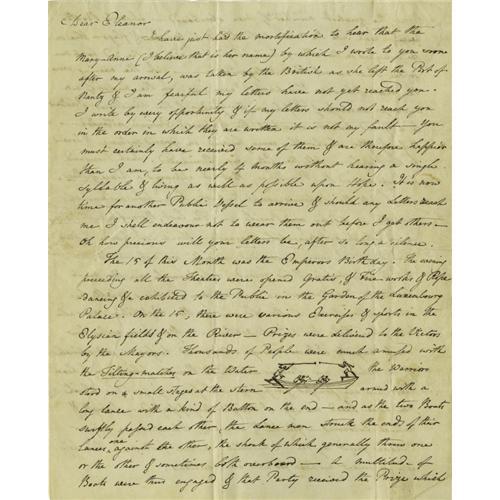 Dear Eleanor
I have just had the mortification to hear that the
Mary-Anne (I believe that is her name) by which I wrote to you soon
after my arrival, was taken by the British as she left the Port of
Nantz & I am fearful my letters have not yet reached you.
I write by every opportunity & if my letters should not reach you
in the order in which they are written it is not my fault — You
must certainly have received some of them & are therefore happier
than I am, to be nearly 4 months without hearing a single
syllable & living as well as possible upon Hope. It is now
time for another Public Vessel to arrive & should any Letters reach
me I shall endeavour not to wear them out before I get others —
Oh how precious will your letters be, after so long a silence.
The 15 of this Month was the Emperors Birthday. The evening
preceding all the Theatres were opened Gratis, & Fire works & Rope
dancing &c exhibited to the Public in the Garden of the Luxembourg
Palace. On the 15, there were various Exercises & sports in the
Elysian fields & on the River — Prizes were delivered to the Victors
by the Mayors. Thousands of People were much amused with
the Tilting-matches on the Water the Warriors
stood on a small Stage at the stern armed with a
long lance with a kind of Button on the end — and as the two Boats
swiftly passed each other, the lance men struck the ends of their
lances, one against the other, the shock of which generally threw one
or the other & sometimes both overboard — A multitude of
Boats were thus engaged & that Party received the Prize which